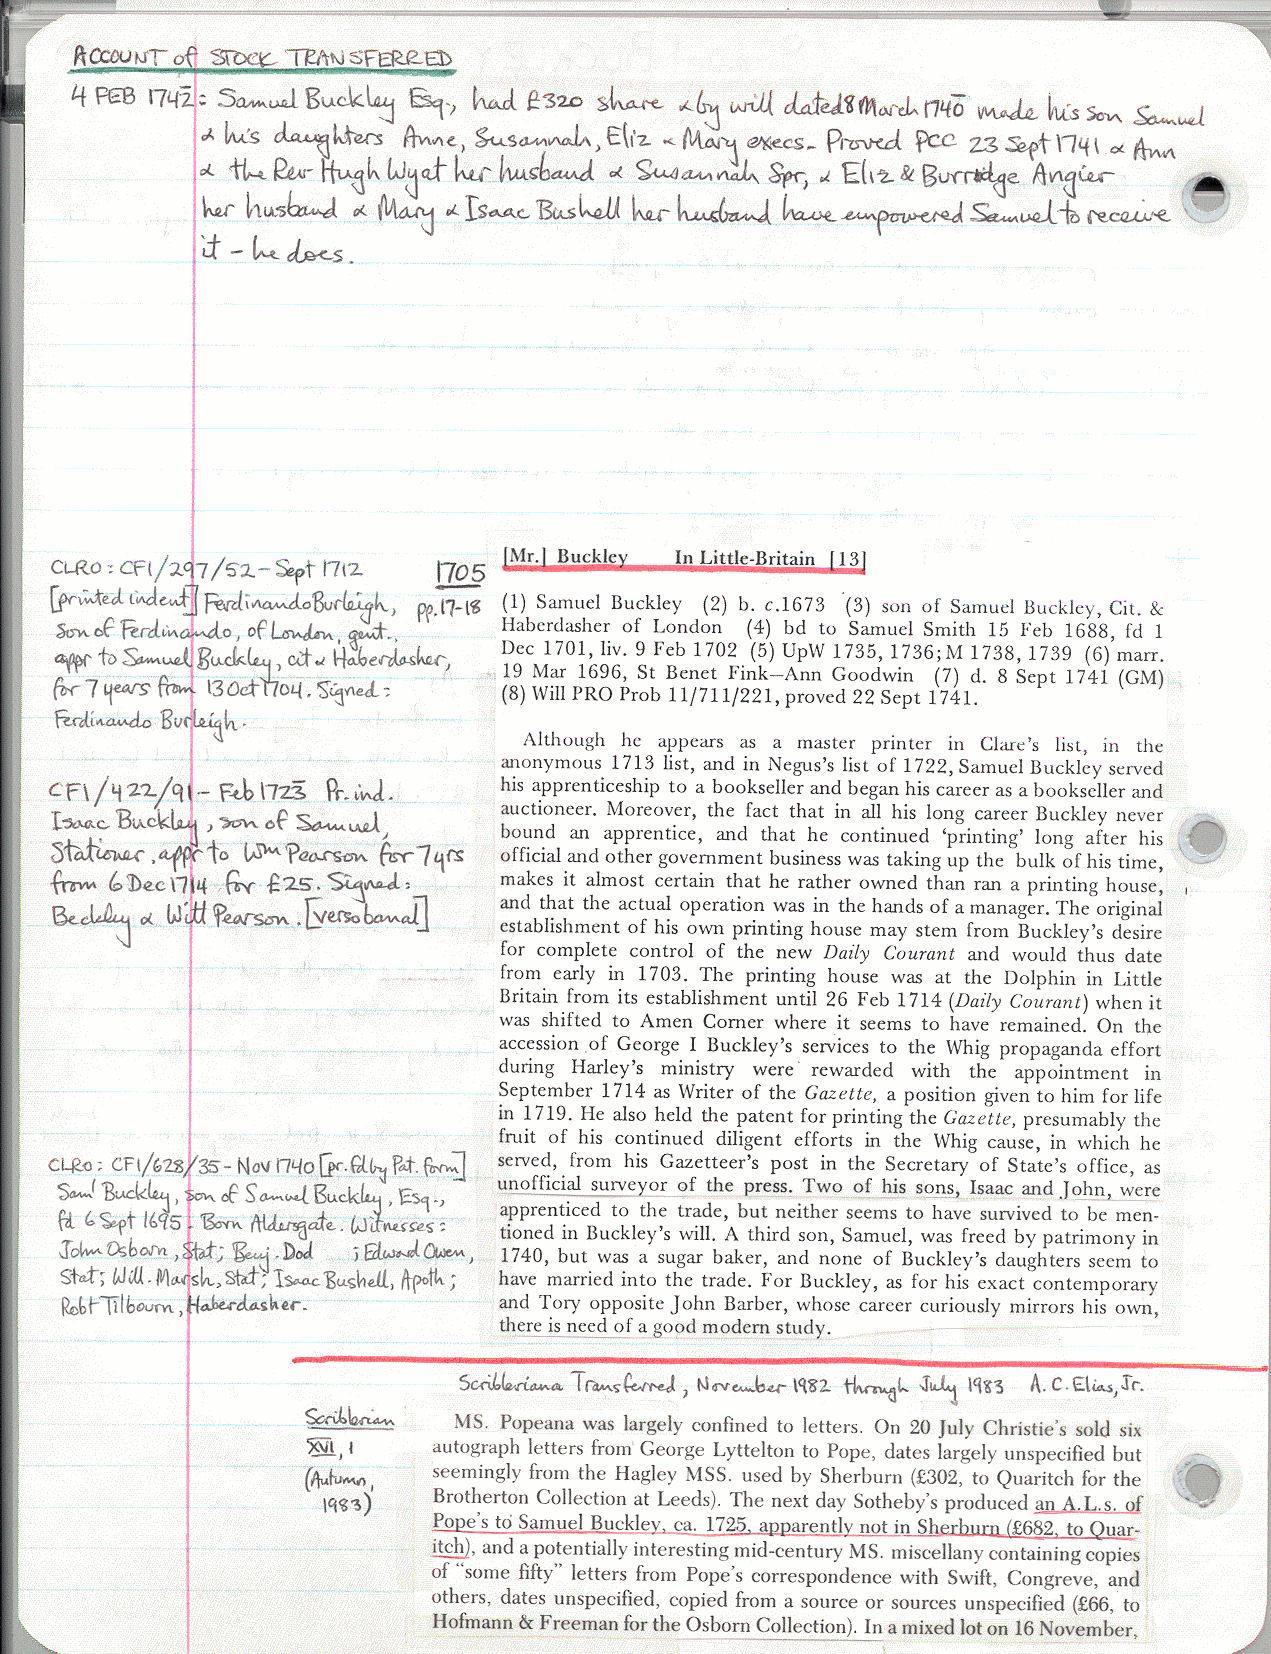 ACCOUNT of STOCK TRANSFERRED
4 FEB 174½: Samuel Buckley Esq., had £320 share & by will dated 8 March 1740 made his son Samuel
& his daughters Anne, Susannah, Eliz & Mary execs. Proved PCC 23 Sept 1741 & Ann
& the Rev Hugh Wyat her husband & Susannah Spr, & Eliz & Burridge Angier
her husband & Mary & Isaac Bushell her husband have empowered Samuel to receive
it - he does.
CLRO: CF1/297/52 - Sept 1712
[printed indent] Ferdinando Burleigh,
son of Ferdinando, of London, gent.,
appr to Samuel Buckley, cit & Haberdasher,
for 7 years from 13 Oct 1704. Signed:
Ferdinando Burleigh.
CF1/422/91 - Feb 1723 Pr. ind.
Isaac Buckley, son of Samuel,
Stationer, appr to Wm Pearson for 7 yrs
from 6 Dec 1714 for £25. Signed:
Beckley & Will Pearson. [verso banal]
CLRO: CF1/628/35 - Nov 1740 [pr. fd by Pat. form]
Saml Buckley, son of Samuel Buckley, Esq.,
fd 6 Sept 1695 - Born Aldersgate. Witnesses:
John Osborn, Stat; Benj. Dod ; Edward Owen,
Stat; Will. Marsh, Stat; Isaac Bushell, Apoth;
Robt Tilbourn, Haberdasher.
1705
pp. 17-18
[Mr.] Buckley In Little-Britain [13]
(1) Samuel Buckley (2) b. c.1673 (3) son of Samuel Buckley, Cit. &
Haberdasher of London (4) bd to Samuel Smith 15 Feb 1688, fd 1
Dec 1701, liv. 9 Feb 1702 (5) UpW 1735, 1736; M 1738, 1739 (6) marr.
19 Mar 1696, St Benet Fink—Ann Goodwin (7) d. 8 Sept 1741 (GM)
(8) Will PRO Prob 11/711/221, proved 22 Sept 1741.
Although he appears as a master printer in Clare's list, in the
anonymous 1713 list, and in Negus's list of 1722, Samuel Buckley served
his apprenticeship to a bookseller and began his career as a bookseller and
auctioneer. Moreover, the fact that in all his long career Buckley never
bound an apprentice, and that he continued 'printing' long after his
official and other government business was taking up the bulk of his time,
makes it almost certain that he rather owned than ran a printing house,
and that the actual operation was in the hands of a manager. The original
establishment of his own printing house may stem from Buckley's desire
for complete control of the new Daily Courant and would thus date
from early in 1703. The printing house was at the Dolphin in Little
Britain from its establishment until 26 Feb 1714 (Daily Courant) when it
was shifted to Amen Corner where it seems to have remained. On the
accession of George I Buckley's services to the Whig propaganda effort
during Harley's ministry were rewarded with the appointment in
September 1714 as Writer of the Gazette, a position given to him for life
in 1719. He also held the patent for printing the Gazette, presumably the
fruit of his continued diligent efforts in the Whig cause, in which he
served, from his Gazetteer's post in the Secretary of State's office, as
unofficial surveyor of the press. Two of his sons, Isaac and John, were
apprenticed to the trade, but neither seems to have survived to be men-
tioned in Buckley's will. A third son, Samuel, was freed by patrimony in
1740, but was a sugar baker, and none of Buckley's daughters seem to
have married into the trade. For Buckley, as for his exact contemporary
and Tory opposite John Barber, whose career curiously mirrors his own,
there is need of a good modern study.
Scribleriana Transferred, November 1982 through July 1983 A. C. Elias, Jr.
Scriblerian
XVI, 1
(Autumn,
1983)
MS. Popeana was largely confined to letters. On 20 July Christie's sold six
autograph letters from George Lyttelton to Pope, dates largely unspecified but
seemingly from the Hagley MSS. used by Sherburn (£302, to Quaritch for the
Brotherton Collection at Leeds). The next day Sotheby's produced an A.L.s. of
Pope's to Samuel Buckley, ca. 1725, apparently not in Sherburn (£682, to Quar-
itch), and a potentially interesting mid-century MS. miscellany containing copies
of "some fifty" letters from Pope's correspondence with Swift, Congreve, and
others, dates unspecified, copied from a source or sources unspecified (£66, to
Hofmann & Freeman for the Osborn Collection). In a mixed lot on 16 November,